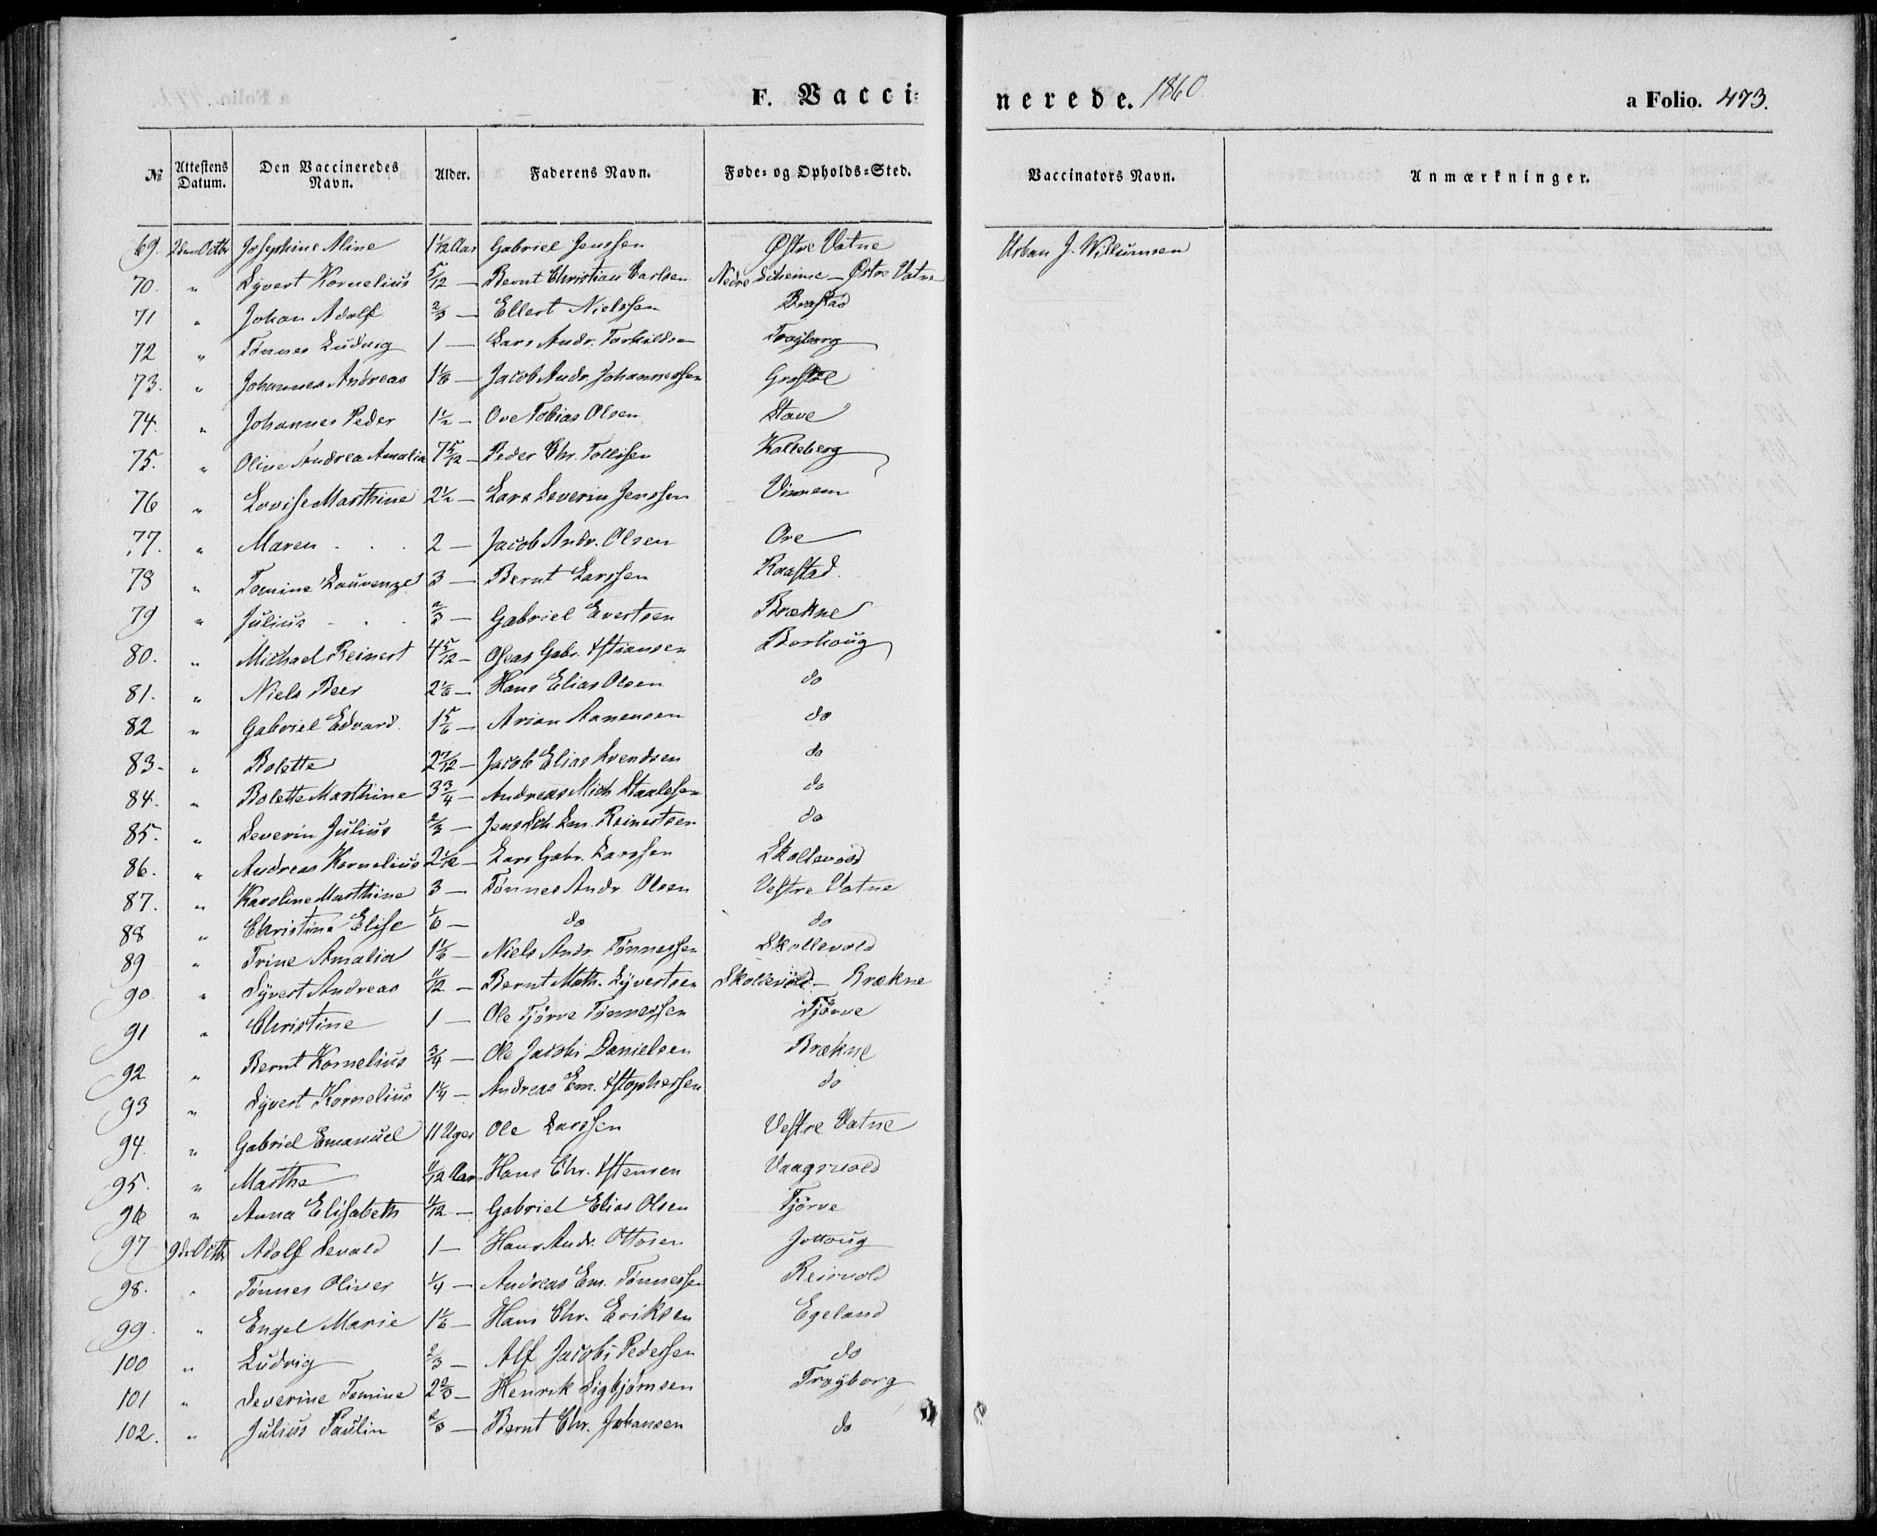 F. Vaccinerede. 1860
a Folio. 473.
№ | Attestens Datum. | Den Vaccineredes Navn. | Alder. | Faderens Navn. | Føde- og Opholds-Sted. | Vaccinators Navn. | Anmærkninger.
69. 2den Octbr Josephine Aline 1 1/12 Aar Gabriel Jenssen Østre Vatne Urban J. Willumsen
70. " Syvert Kornelius 5/12 — Bernt Christian Carlsen Nedre Scheime — Østre Vatne
71 " Johan Adolf 2/3 — Ellert Nielssen
72 " Tønnes Ludvig 1 — Lars Andr. Torkildsen Frøyborg
73. " Johannes Andreas 1 1/6 — Jacob Andr. Johannessen Grostøl
74. " Johannes Peder 1 1/2 — Ove Tobias Olsen Stave
75. " Oline Andrea Amalia 7 5/12 — Peder Chr. Tollissen Kalleberg
76 " Lovise Marthine 2 1/2 — Lars Severin Jenssen Vinnem
77. " Maren . . . 2 — Jacob Andr. Olsen Ore
78 " Tomine Lauvenze 3 — Bernt Larssen Raastad.
79 " Julius . . . 2/3 — Gabriel Evertsen Brækne
80. " Michael Reinert 4 5/12 — Oseas Gabr. Xstiansen Borhoug
81. " Niels Beer 2 1/6 — Hans Elias Olsen do
82 " Gabriel Edvard. 1 5/6 — Arian Aanensen do
83. " Bolette 2 7/12 — Jacob Elias Svendsen do
84. " Bolette Marthine 3 3/4 — Andreas Mich. Staalesen do
85. " Severin Julius 2/3 — Jens Sch. Em. Reinertsen do
86. " Andreas Kornelius 2 1/12 — Lars Gabr. Larssen Skollevold
87. " Karoline Marthine 3 — Tønnes Andr. Olsen Vestre Vatne
88 " Christine Elise 1/6 — do do
89 " Trine Amalia 1 1/6 — Niels Andr. Tønnessen Skollevold
90. " Syvert Andreas 11/12 — Bernt Math. Syvertsen Skollevold — Brækne
91 " Christine 1 — Ole Tjørve Tønnessen Tjørve
92 " Bernt Kornelius 3/4 — Ole Jacobi Danielsen Brækne
93 " Syvert Kornelius 1 1/4 — Andreas Em. Xstophersen do
94. " Gabriel Emanuel 11 Uger Ole Larssen Vestre Vatne
95. " Marthe /12 Aar Hans Chr. Xstensen Vaagsvold
96 " Anna Elisabeth /12 — Gabriel Elias Olsen Tjørve
97 9de Octbr Adolf Sevald 1 — Hans Andr. Ottosen Jottoug
98. " Tønnes Oliver 1/4 — Andreas Em. Tønnessen Reirvold
99. " Engel Marie 1 1/6 — Hans Chr. Eriksen Egeland
100 " Ludvig 2/3 — Alf Jacobi Pedersen do
101 " Severine Tomine 2 2/3 — Henrik Sigbjørnsen Frøyborg
102. " Julius Paulin 2/3 — Bernt Chr. Johansen do